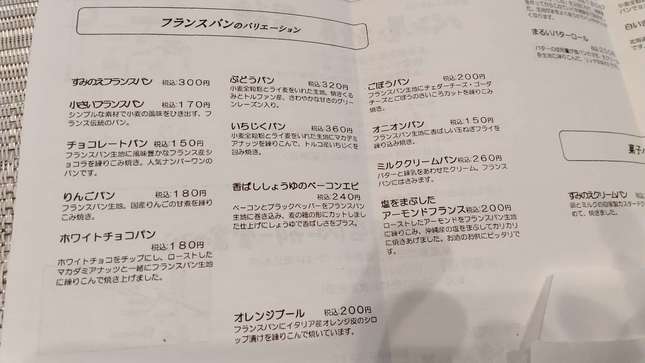 フランスパンのバリエーション
すみのえフランスパン 税込300円
小さいフランスパン 税込170円
シンプルな素材で小麦の風味をひき出す、フ
ランス伝統のパン。
チョコレートパン 税込150円
フランスパン生地に風味豊かなフランス産シ
ョコラを練りこんで。人気ナンバーワンの
パンです。
りんごパン 税込180円
フランスパン生地。国産りんごの甘煮を練り
こみ焼き。
ホワイトチョコパン
税込180円
ホワイトチョコをチップにし、ローストした
マカダミアナッツと一緒にフランスパン生地
に練りこんで焼き上げました。
ぶどうパン 税込320円
小麦全粒粉とライ麦をいれた生地。焼きくる
みとトルファン産、さわやかな甘さのグリー
ンレーズン入り。
いちじくパン 税込360円
小麦全粒粉とライ麦をいれた生地にマカデミ
アナッツを練りこんで、トルコ産いちじくを
包み焼き。
香ばししょうゆのベーコンエピ
税込240円
ベーコンとブラックペッパーをフランスパン
生地に巻き込み、麦の穂の形にカットしまし
た仕上げにしょうゆで香ばしさをプラス。
オレンジブール 税込200円
フランスパンにイタリア産オレンジ皮のシロ
ップ漬けを練りこんで焼いています。
ごぼうパン 税込200円
フランスパン生地にチェダーチーズ・ゴーダ
チーズとごぼうのさいころカットを練りこみ
焼き。
オニオンパン 税込150円
フランスパン生地に香ばしい玉ねぎフライを
練り込み焼き。
ミルククリームパン 税込260円
バターと練乳をあわせたクリーム。フランス
パンにはさみます。
塩をまぶした
アーモンドフランス 税込200円
ローストしたアーモンドをフランスパン生地
に練りこみ、沖縄産の塩をまぶしてカリカリ
に焼きあげました。お酒のお供にピッタリで
す。
まるいバターロール
菓子パ
すみのえクリームパン 税込
めて、焼きました。
白い